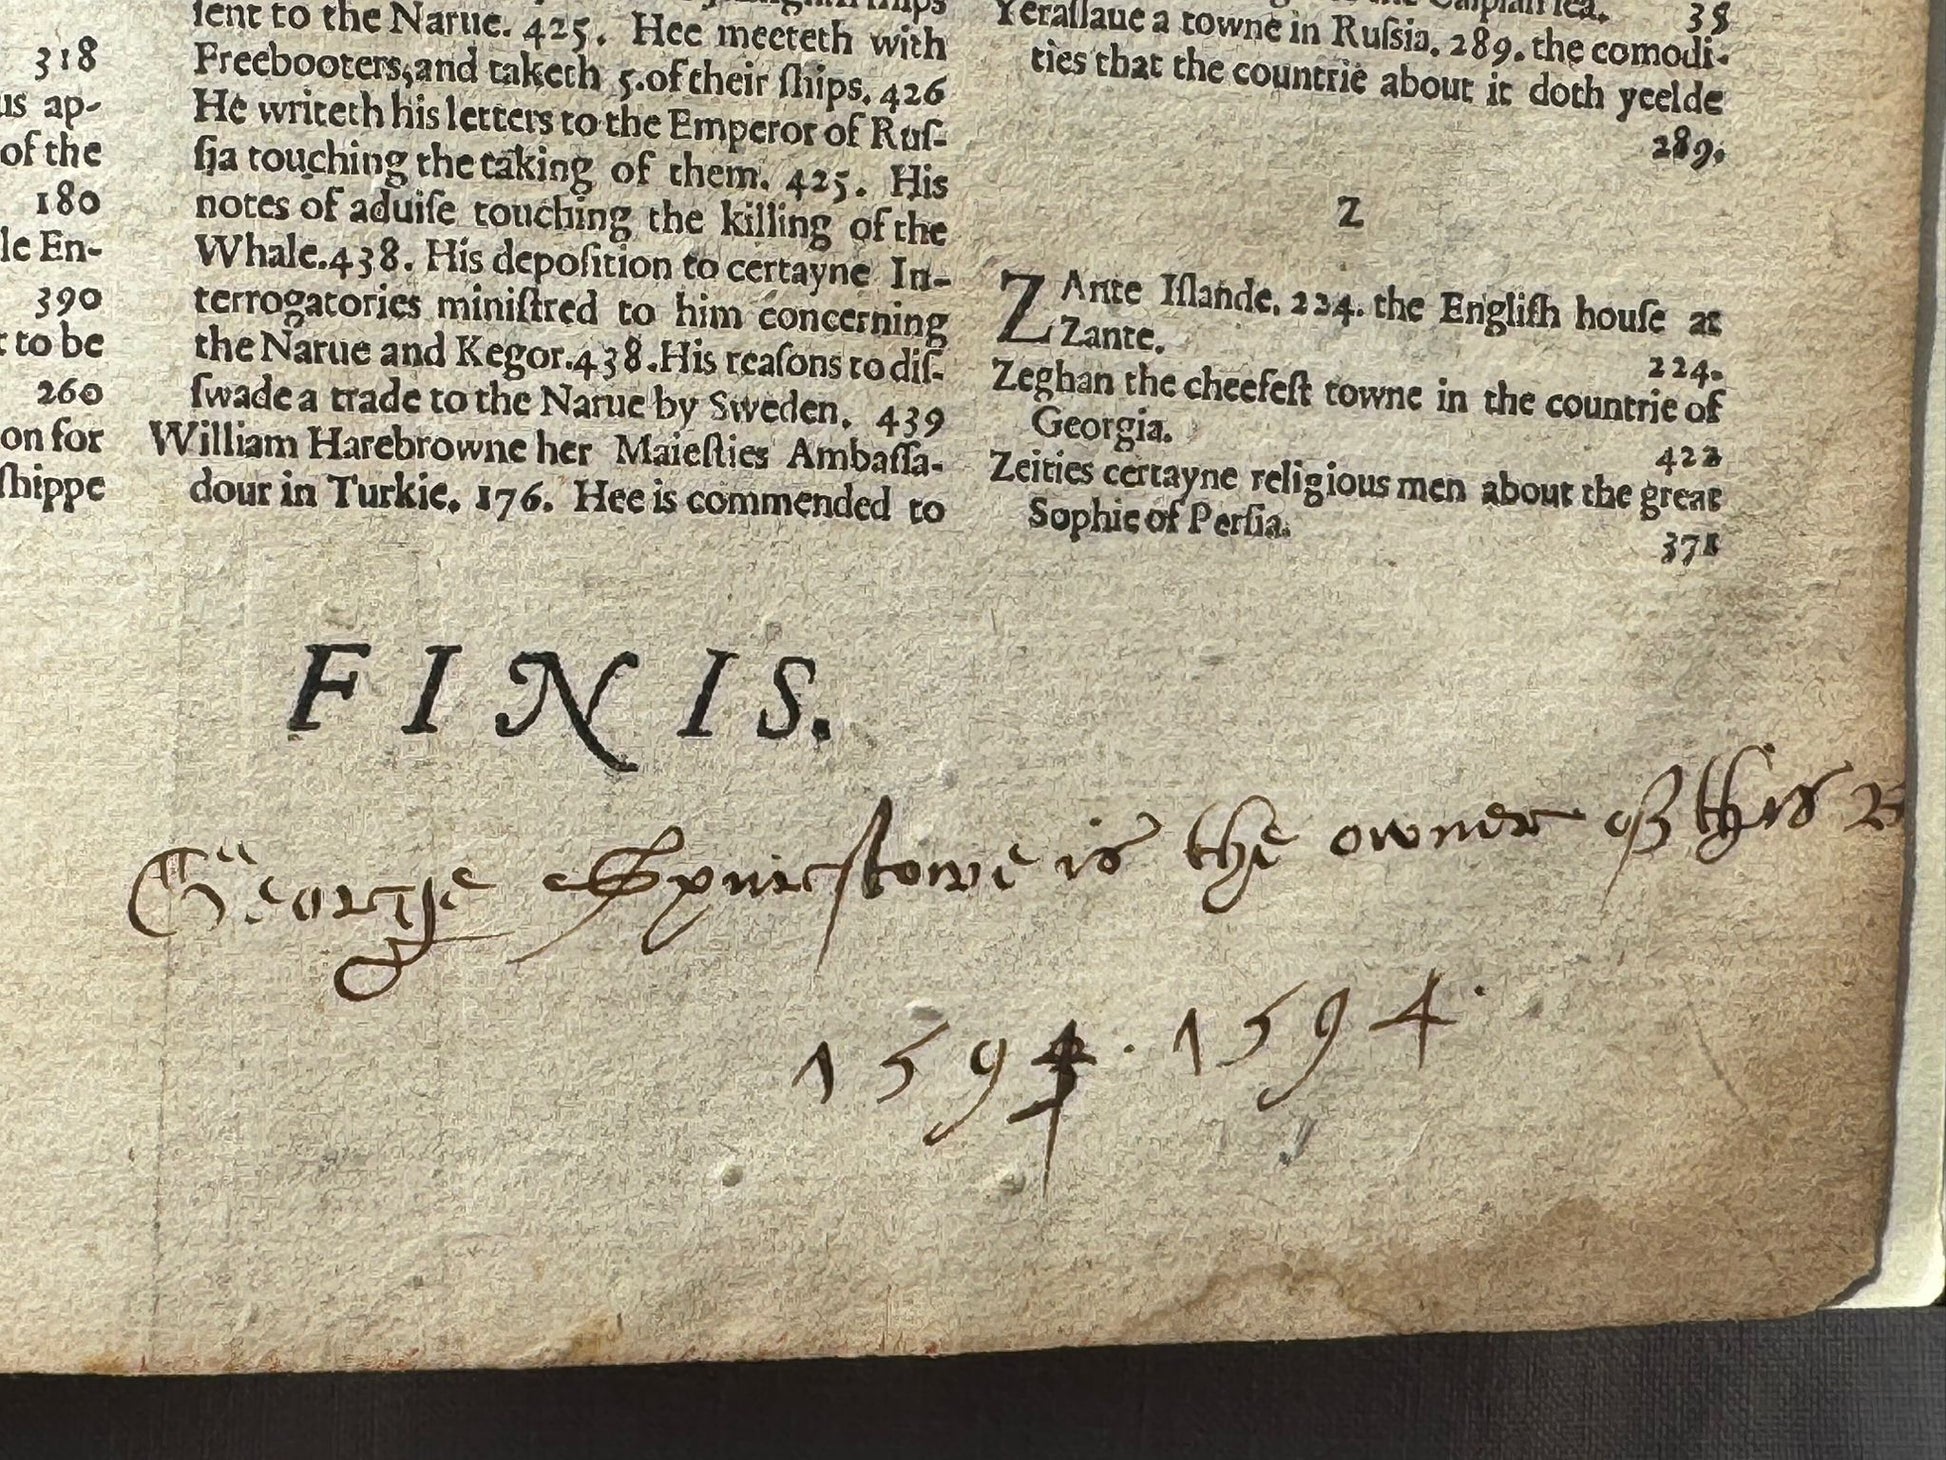 318
us ap-
of the
180
le En-
390
t to be
260
on for
ſhippe
ſent to the Narue. 425. Hee meeteth with
Freebooters, and taketh 5. of their ſhips. 426
He writeth his letters to the Emperor of Ruſ-
ſia touching the taking of them. 425. His
notes of aduiſe touching the killing of the
Whale. 438. His depoſition to certayne In-
terrogatories miniſtred to him concerning
the Narue and Kegor. 438. His reaſons to diſ-
ſwade a trade to the Narue by Sweden. 439
William Harebrowne her Maieſties Ambaſſa-
dour in Turkie. 176. Hee is commended to
Yeraſlaue a towne in Ruſsia. 289. the comodi-
ties that the countrie about it doth yeelde
289.
Z
ZAnte Iſlande. 224. the Engliſh houſe at
Zante. 224.
Zeghan the cheefeſt towne in the countrie of
Georgia. 422
Zeities certayne religious men about the great
Sophie of Perſia. 371
FINIS.
George is the owner of this B
1594. 1594.